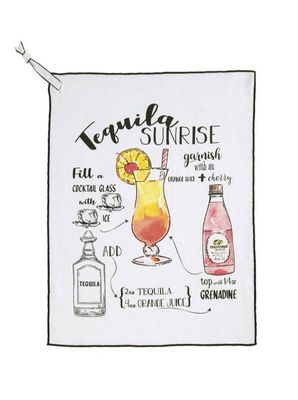 Tequila
SUNRISE
garnish
with an
ORANGE SLICE + cherry
Fill a
COCKTAIL GLASS
with
ICE
ADD
TEQUILA
2oz TEQUILA
4oz ORANGE JUICE
top with 1/4oz
GRENADINE